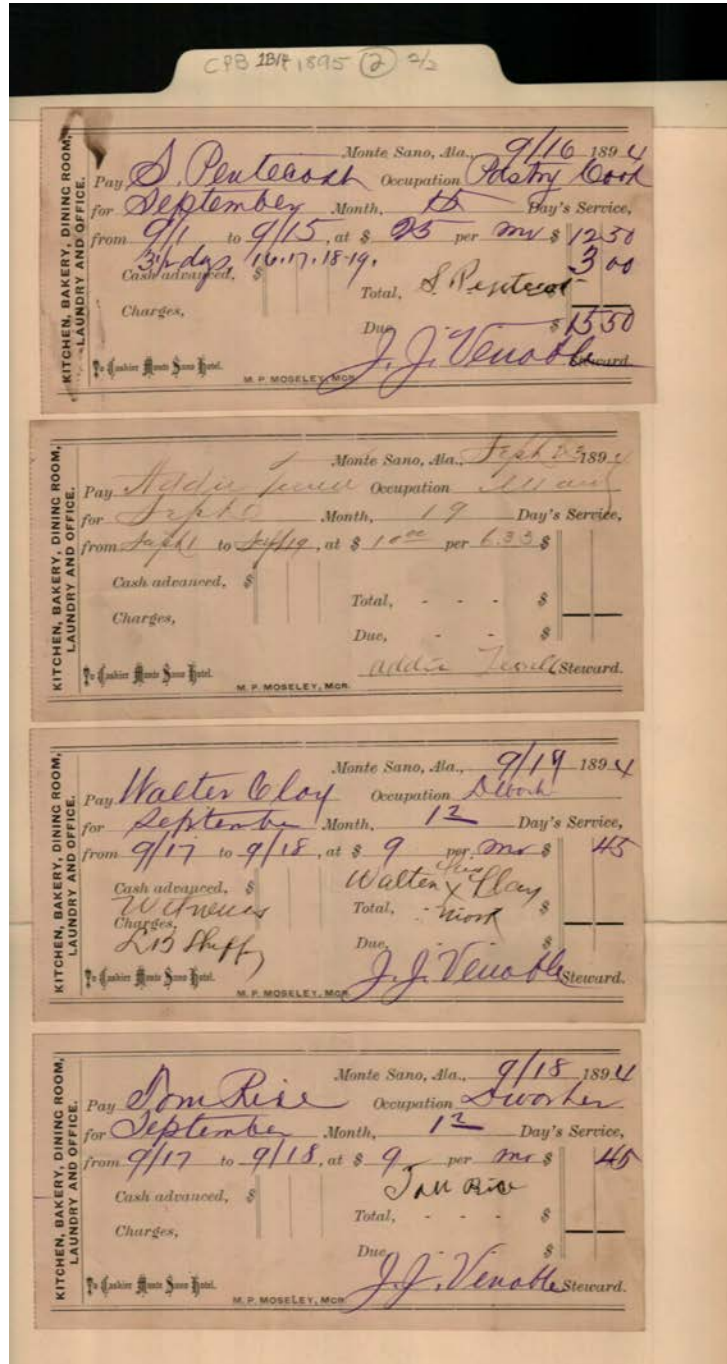 CPB 1B/4 1895 (2) 2/2
KITCHEN, BAKERY, DINING ROOM,
LAUNDRY AND OFFICE.
Monte Sano, Ala., 9/16 1894
Pay S. Pentecost Occupation Pastry Cook
for September Month, 15 Day's Service,
from 9/1 to 9/15, at $ 25 per mo $ 12 50
days 16.17.18-19. 3 00
Cash advanced, $
Total, S. Pentecost
Charges,
Due $ 15 50
J. J. Venable Steward.
To Cashier Monte Sano Hotel.
M. P. MOSELEY, MGR.
KITCHEN, BAKERY, DINING ROOM,
LAUNDRY AND OFFICE.
Monte Sano, Ala., Sept 23 1894
Pay Addie Occupation
for Sept Month, 19 Day's Service,
from Sept 1 to Sept 19, at $ 10 00 per 6.33 $
Cash advanced, $
Total, - - - $
Charges,
Due, - - $
Addie Steward.
To Cashier Monte Sano Hotel.
M. P. MOSELEY, MGR.
KITCHEN, BAKERY, DINING ROOM,
LAUNDRY AND OFFICE.
Monte Sano, Ala., 9/19 1894
Pay Walter Clay Occupation
for September Month, 1 2 Day's Service,
from 9/17 to 9/18, at $ 9 per mo $ 45
Cash advanced, $ Walter X Clay
Witness
Total, - mark $
Charges,
Due, $
J. J. Venable Steward.
To Cashier Monte Sano Hotel.
M. P. MOSELEY, MGR.
KITCHEN, BAKERY, DINING ROOM,
LAUNDRY AND OFFICE.
Monte Sano, Ala., 9/18 1894
Pay Tom Rice Occupation Dwasher
for September Month, 1 2 Day's Service,
from 9/17 to 9/18, at $ 9 per mo $ 45
Cash advanced, $ Tom Rice
Total, - - - $
Charges,
Due $
J. J. Venable Steward.
To Cashier Monte Sano Hotel.
M. P. MOSELEY, MGR.